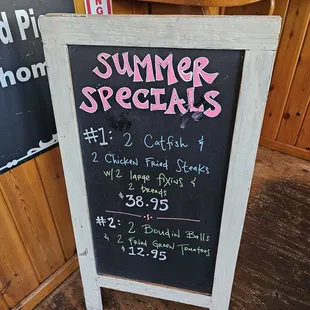 d Pi
hom
SUMMER
SPECIALS
#1: 2 Catfish &
2 Chicken Fried Steaks
w/2 large fixins &
2 breads
$38.95
-$-
#2: 2 Boudin Balls
& 2 Fried Green Tomatoes
$12.95